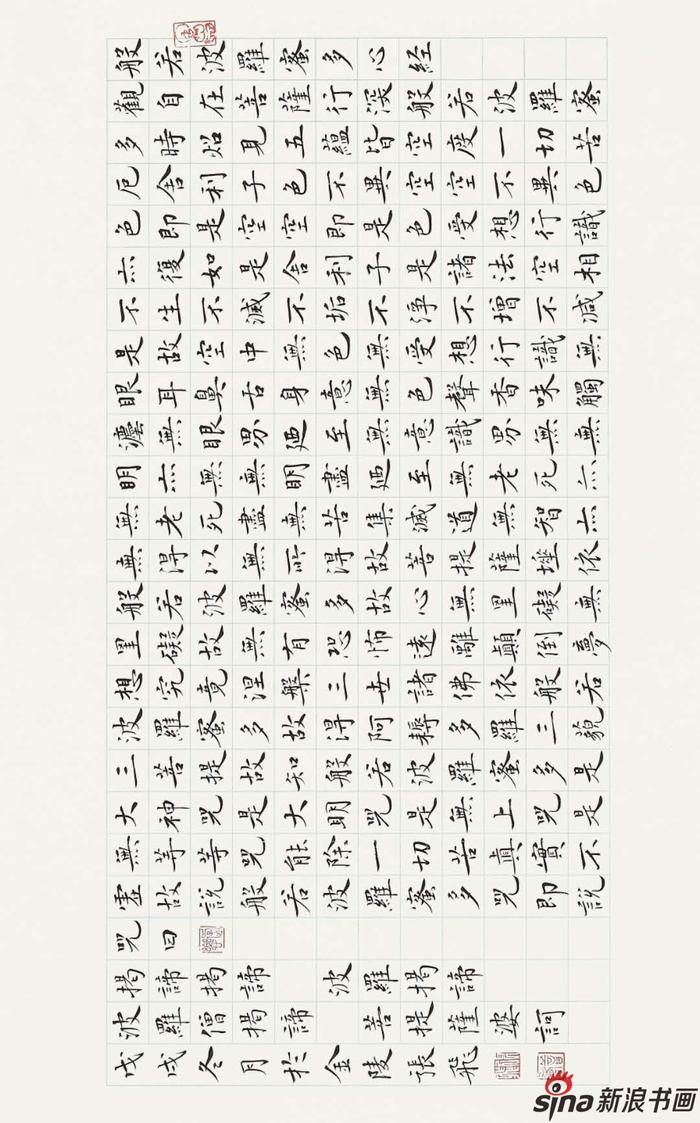 般若波羅蜜多心経
觀自在菩薩行深般若波羅蜜
多時炤見五蘊皆空度一切苦
厄舍利子色不異空空不異色
色即是空空即是色受想行識
亦復如是舍利子是諸法空相
不生不滅不垢不淨不增不減
是故空中無色無受想行識無
眼耳鼻舌身意無色聲香味觸
灋無眼界廼至無意識界無無
明亦無無明盡廼至無老死亦
無老死盡無苦集滅道無智亦
無得以無所得故菩提薩埵依
般若波羅蜜多故心無罣礙無
罣礙故無有恐怖遠離顛倒夢
想究竟涅槃三世諸佛依般若
波羅蜜多故得阿耨多羅三藐
三菩提故知般若波羅蜜多是
大神咒是大明咒是無上咒是
無等等咒能除一切苦真實不
虛故說般若波羅蜜多咒即說
咒曰
揭諦揭諦 波羅揭諦
波羅僧揭諦 菩提薩婆訶
戊戌冬月於金陵張飛
sina 新浪书画